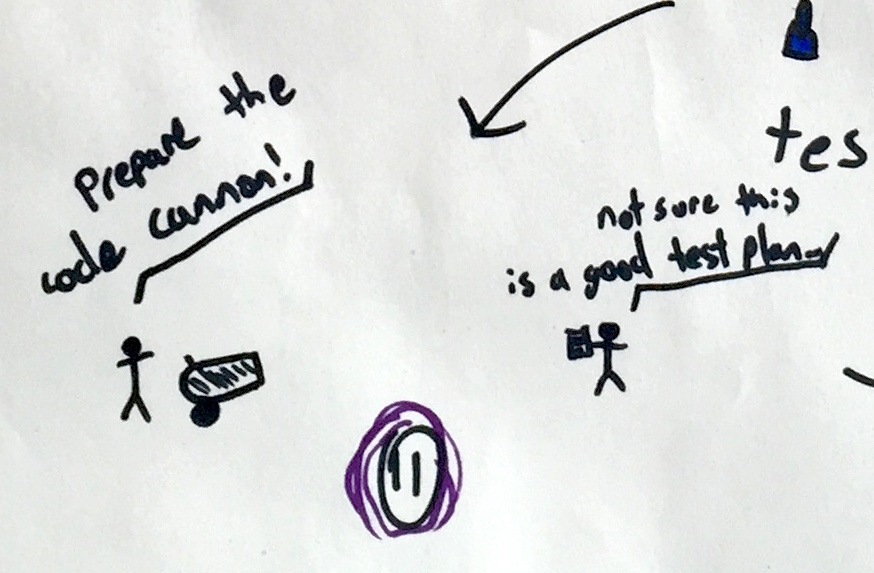 Prepare the
code cannon!
tes
not sure this
is a good test plan